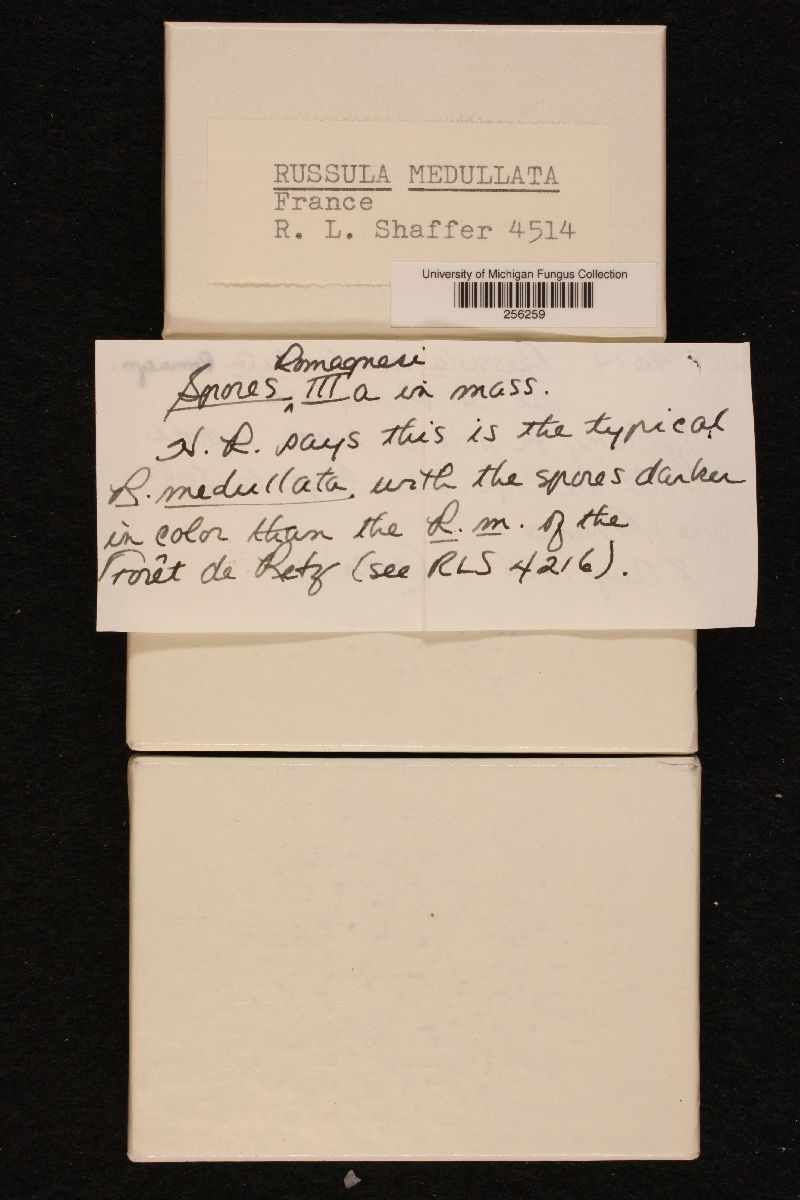 RUSSULA MEDULLATA
France
R. L. Shaffer 4514
University of Michigan Fungus Collection
256259
Romagnesi
Spores ‸ IIIa in mass.
H. R. says this is the typical
R. medullata, with the spores darker
in color than the R. m. of the
Forêt de Retz (see RLS 4216).